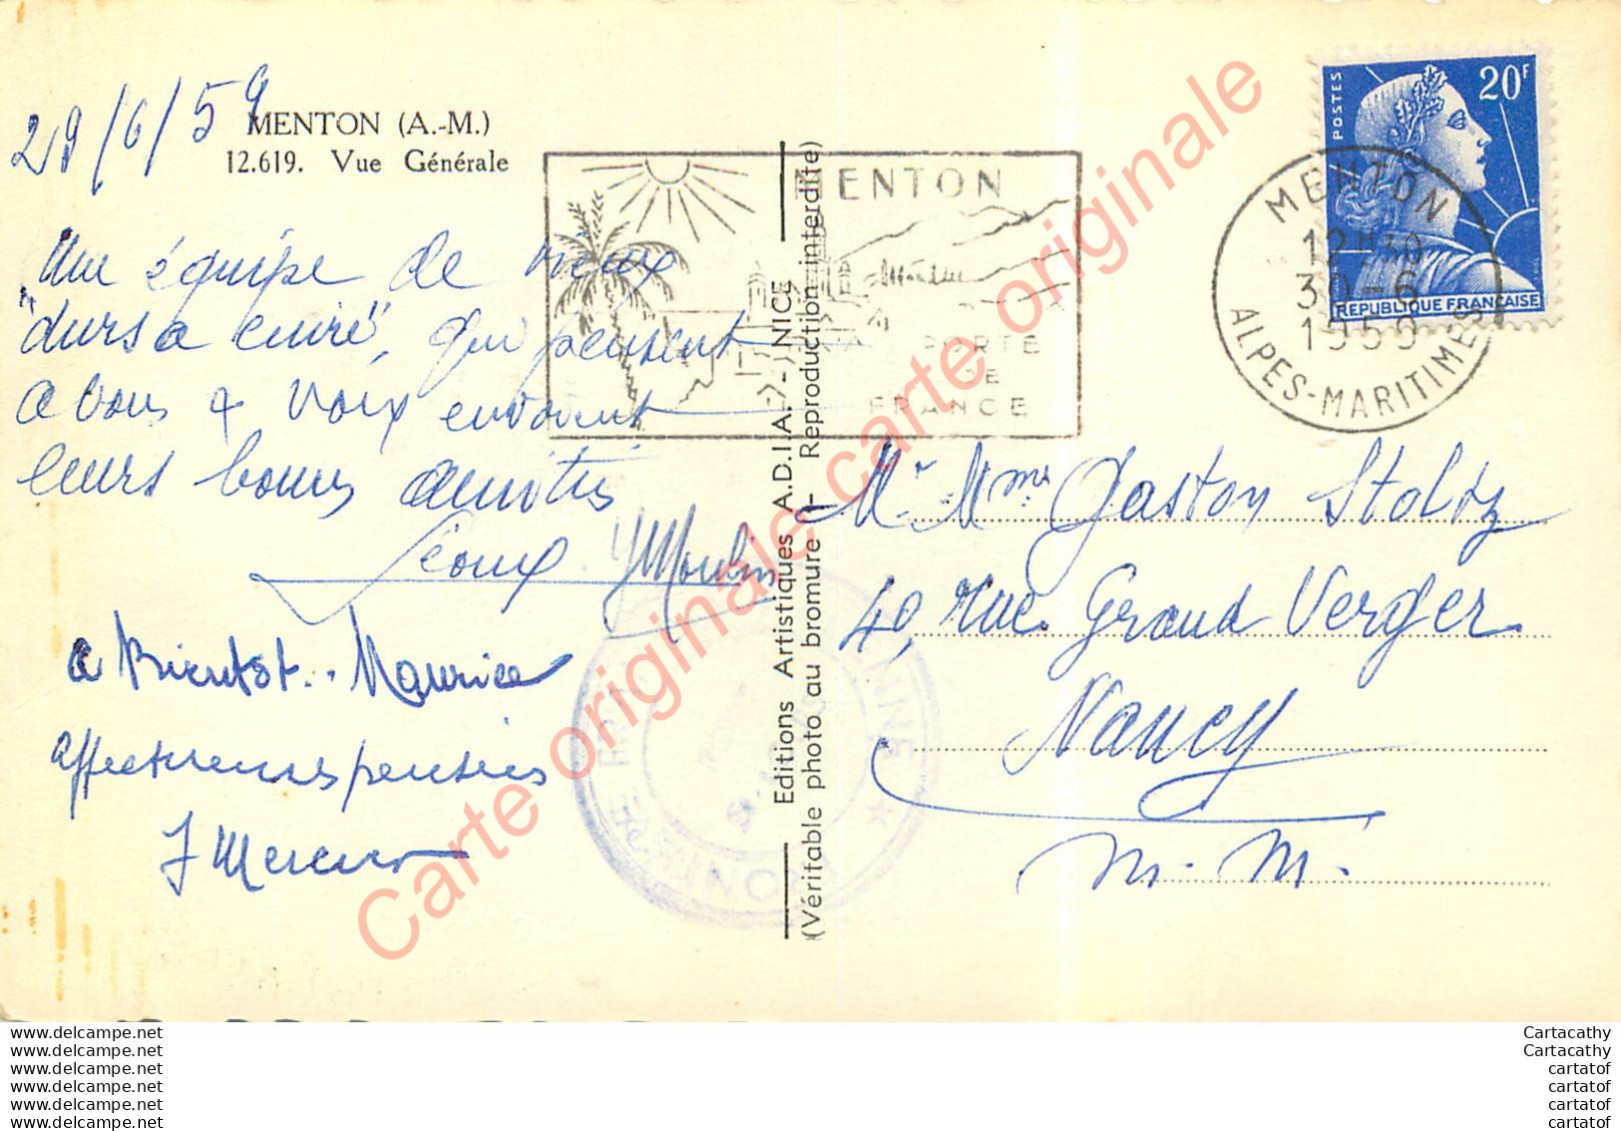 29/6/59
MENTON (A.-M.)
12.619. Vue Générale
Une équipe de vieux
"durs a cuire", qui pensent
a vous & voix envoient
leurs bonnes amitiés
YMoulin
a Bientôt.. Maurice
affectueuses pensées
MENTON
PORTE
DE
FRANCE
Editions Artistiques A.D.I.A. - NICE
(Véritable photo au bromure - Reproduction interdite)
POSTES
20F
REPUBLIQUE FRANÇAISE
MENTON
12H30
30-6
1959
ALPES-MARITIMES
Mr Mme Gaston Stoltz
40, rue Grand Verger
Nancy
M.-M.
Carte originale carte originale Carte originale
www.delcampe.net
www.delcampe.net
www.delcampe.net
www.delcampe.net
www.delcampe.net
www.delcampe.net
Cartacathy
Cartacathy
cartatof
cartatof
cartatof
cartatof